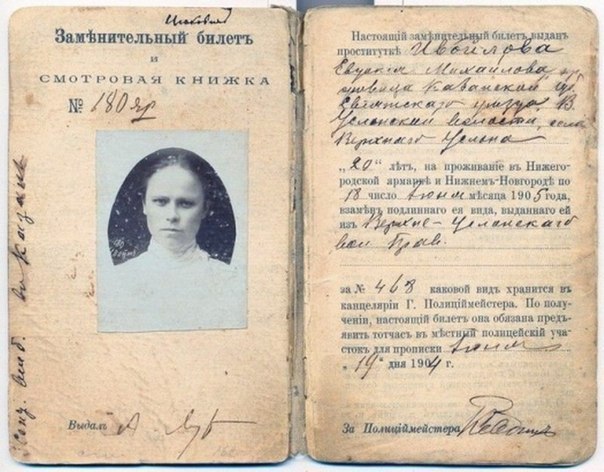 Замѣнительный билетъ
и
СМОТРОВАЯ КНИЖКА
№ 180 яр
Выдалъ
Настоящій замѣнительный билетъ выданъ
проституткѣ
Евдокія Михайлова
Казанской
уѣзда, В.
Услонской волости, села
Верхняго Услона
„20" лѣтъ, на проживаніе въ Нижего-
родской ярмаркѣ и Нижнемъ-Новгородѣ по
18 число іюня мѣсяца 1905 года,
взамѣнъ подлиннаго ея вида, выданнаго ей
изъ Верхне-Услонскаго
вол. Прав.
за № 463 каковой видъ хранится въ
канцеляріи Г. Полиціймейстера. По полу-
ченіи, настоящій билетъ она обязана предъ-
явить тотчасъ въ мѣстный полицейскій уча-
стокъ для прописки іюня
„19" дня 1904 г.
За Полиціймейстера